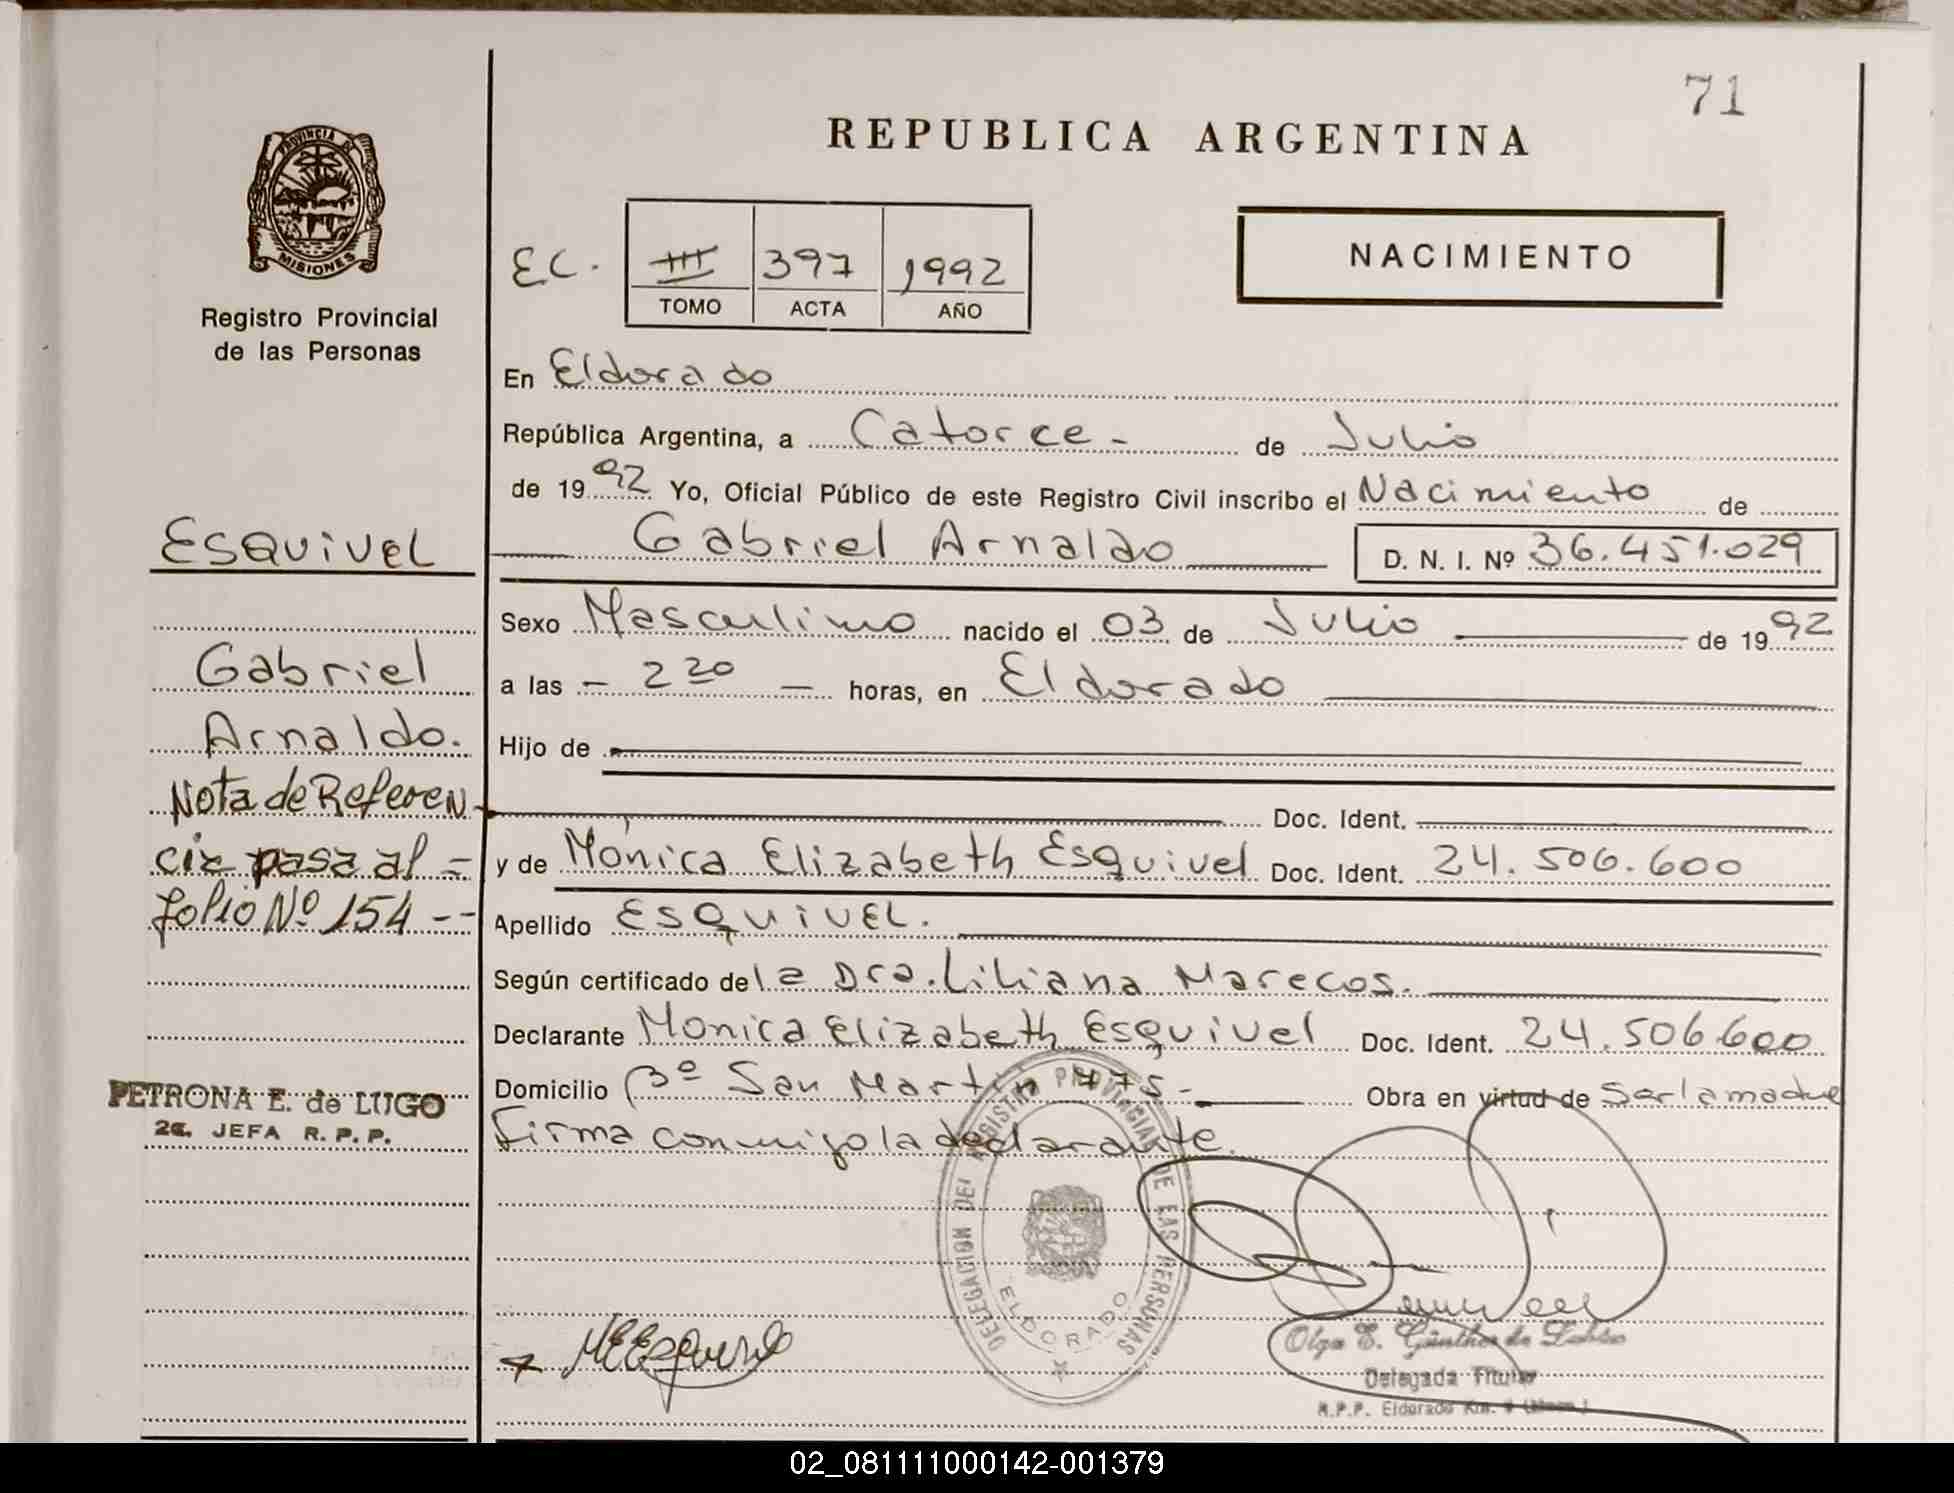 71
REPUBLICA ARGENTINA
PROVINCIA DE
MISIONES
Registro Provincial
de las Personas
EC.
III 397 1992
TOMO ACTA AÑO
NACIMIENTO
En Eldorado
República Argentina, a Catorce - de Julio
de 1992 Yo, Oficial Público de este Registro Civil inscribo el Nacimiento de
Gabriel Arnaldo D. N. I. Nº 36.451.029
Sexo Masculino nacido el 03 de Julio de 1992
a las - 2 20 - horas, en Eldorado
Hijo de
Doc. Ident.
y de Mónica Elizabeth Esquivel Doc. Ident. 24.506.600
Apellido ESQUIVEL.
Según certificado de la Dra. Liliana Marecos.
Declarante Monica Elizabeth Esquivel Doc. Ident. 24.506.600
Domicilio Bº San Martin 475- Obra en virtud de Ser la madre
Firma conmigo la declarante.
ESQUIVEL
Gabriel
Arnaldo.
Nota de Referen
cia pasa al =
folio Nº 154 --
PETRONA E. de LUGO
2a. JEFA R. P. P.
DELEGACION DEL REGISTRO PROVINCIAL DE LAS PERSONAS
ELDORADO
MEEsquivel
Olga E. Günther de
Delegada Titular
R.P.P. Eldorado Km. 9
02_081111000142-001379